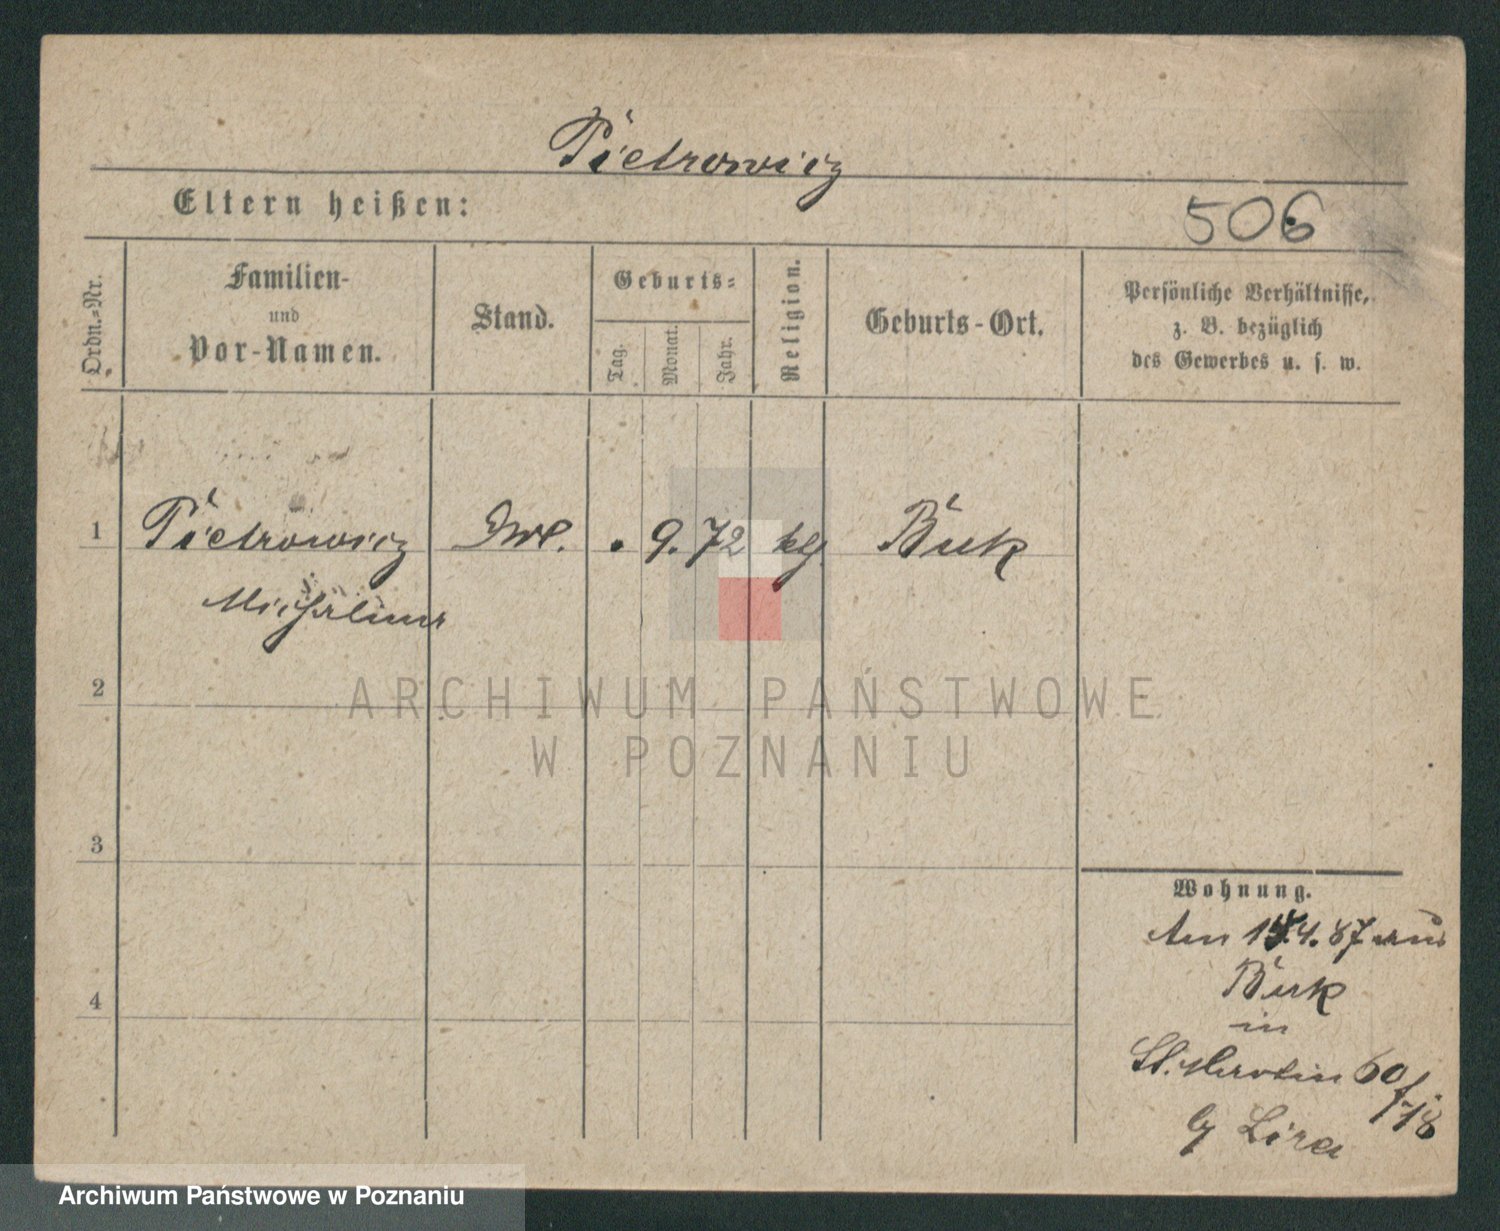 Pietrowicz
Eltern heißen:
506
Ordn.-Nr.
Familien-
und
Vor-Namen.
Stand.
Geburts-
Tag.
Monat.
Jahr.
Religion.
Geburts-Ort.
Persönliche Verhältnisse,
z. B. bezüglich
des Gewerbes u. s. w.
1
Pietrowicz
9. 72
Buk
Michalina
2
ARCHIWUM PAŃSTWOWE
W POZNANIU
3
Wohnung.
4. 87 aus
Buk
in
St. Martin 60
Archiwum Państwowe w Poznaniu
4